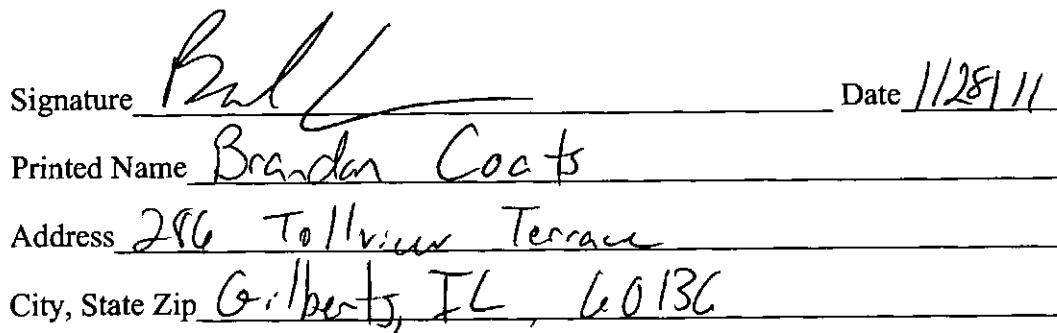 Signature Date 1/28/11
Printed Name Brandon Coats
Address 286 Tollview Terrace
City, State Zip Gilberts, IL, 60136